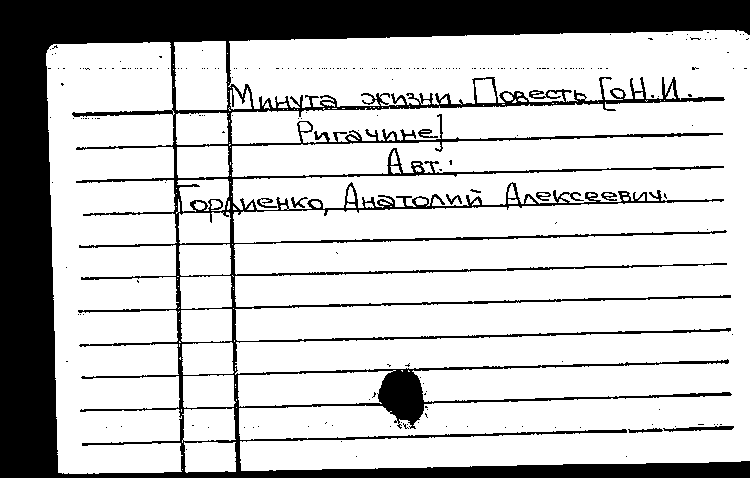 Минута жизни. Повесть [о Н.И.
Ригачине]
Авт.:
Гордиенко, Анатолий Алексеевич.